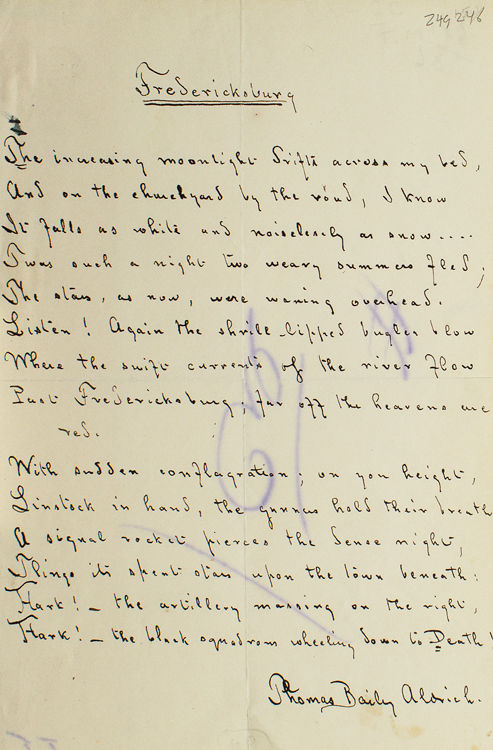 249246
Fredericksburg
The increasing moonlight drifts across my bed,
And on the churchyard by the road, I know
It falls as white and noiselessly as snow....
Twas such a night two weary summers fled;
The stars, as now, were waning overhead.
Listen! Again the shrill-lipped bugles blow
Where the swift currents of the river flow
Past Fredericksburg; far off the heavens are
red.
With sudden conflagration; on yon height,
Linstock in hand, the gunners hold their breath
A signal rocket pierces the dense night,
Flings its spent stars upon the town beneath:
Hark! — the artillery massing on the right,
Hark! — the black squadrons wheeling down to Death!
Thomas Bailey Aldrich.